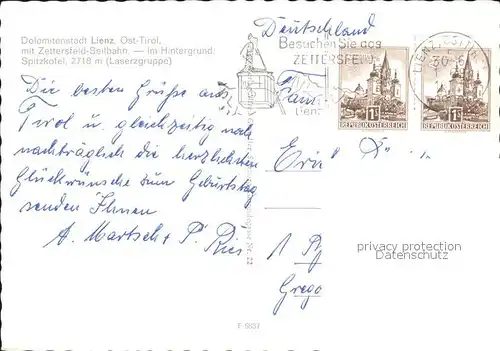 Dolomitenstadt Lienz, Ost-Tirol,
mit Zettersfeld-Seilbahn. — Im Hintergrund:
Spitzkofel, 2718 m (Laserzgruppe)
Deutschland
Besuchen Sie das
ZETTERSFELD
Die besten Grüße aus
Tirol u. gleichzeitig noch
nachträglich die herzlichsten
Glückwünsche zum Geburtstag
senden Ihnen
A. Martsch + P. Ries
Fam.
Lienz
LIENZ, OSTTIROL
30.
1S 1S
REPUBLIK ÖSTERREICH REPUBLIK ÖSTERREICH
privacy protection
Datenschutz
Grego
Nr. 22